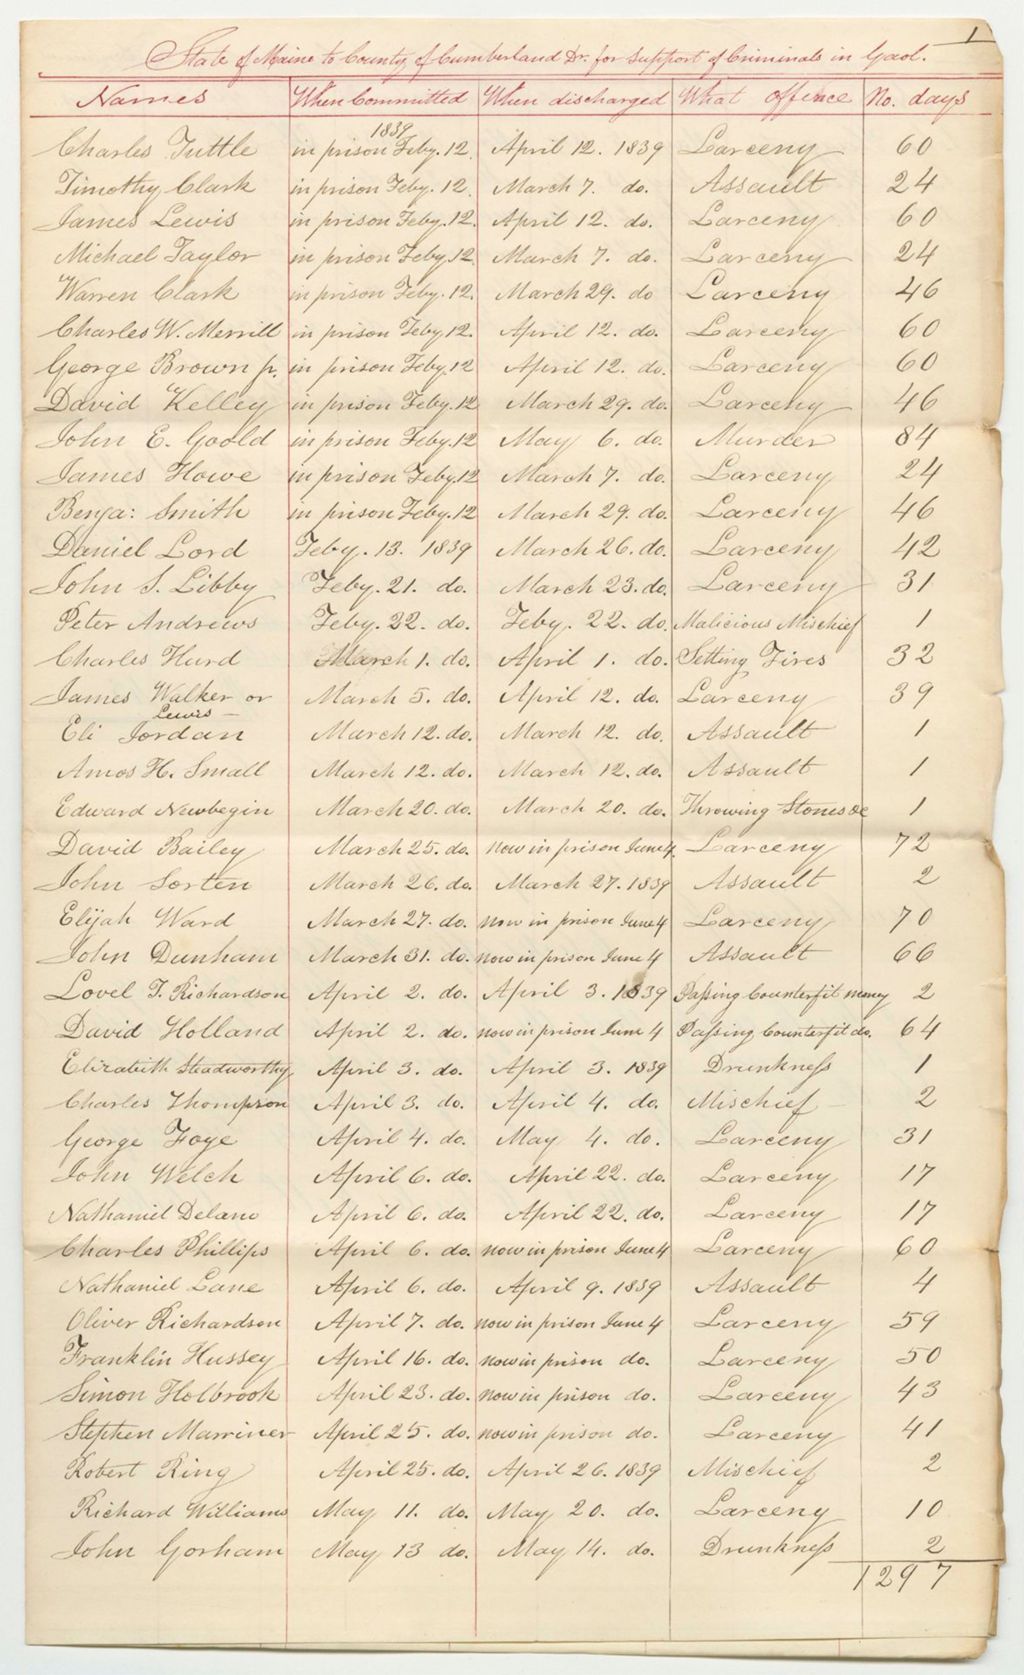 1
State of Maine to County of Cumberland Dr. for Support of Criminals in Gaol.
Names When Committed When discharged What offence No. days
1839
Charles Tuttle in prison Feby. 12. April 12. 1839 Larceny 60
Timothy Clark in prison Feby. 12. March 7. do. Assault 24
James Lewis in prison Feby. 12. April 12. do. Larceny 60
Michael Taylor in prison Feby. 12. March 7. do. Larceny 24
Warren Clark in prison Feby. 12. March 29. do Larceny 46
Charles W. Merrill in prison Feby. 12. April 12. do. Larceny 60
George Brown jr. in prison Feby. 12 April 12. do. Larceny 60
David Kelley in prison Feby. 12 March 29. do. Larceny 46
John E. Goold in prison Feby. 12 May 6. do. Murder 84
James Howe in prison Feby. 12 March 7. do. Larceny 24
Benja: Smith in prison Feby. 12 March 29. do. Larceny 46
Daniel Lord Feby. 13. 1839 March 26. do. Larceny 42
John S. Libby Feby. 21. do. March 23. do. Larceny 31
Peter Andrews Feby. 22. do. Feby. 22. do. Malicious Mischief 1
Charles Hurd March 1. do. April 1. do. Setting Fires 32
James Walker or March 5. do. April 12. do. Larceny 39
Lewis
Eli Jordan March 12. do. March 12. do. Assault 1
Amos H. Small March 12. do. March 12. do. Assault 1
Edward Newbegin March 20. do. March 20. do. Throwing Stones &c 1
David Bailey March 25. do. now in prison June 4. Larceny 72
John Sorten March 26. do. March 27. 1839 Assault 2
Elijah Ward March 27. do. now in prison June 4 Larceny 70
John Dunham March 31. do. now in prison June 4 Assault 66
Lovel T. Richardson April 2. do. April 3. 1839 Passing Counterfit money 2
David Holland April 2. do. now in prison June 4 Passing Counterfit do. 64
Elizabeth Steadworthy April 3. do. April 3. 1839 Drunkness 1
Charles Thompson April 3. do. April 4. do. Mischief 2
George Foye April 4. do. May 4. do. Larceny 31
John Welch April 6. do. April 22. do. Larceny 17
Nathaniel Delano April 6. do. April 22. do. Larceny 17
Charles Phillips April 6. do. now in prison June 4 Larceny 60
Nathaniel Lane April 6. do. April 9. 1839 Assault 4
Oliver Richardson April 7. do. now in prison June 4 Larceny 59
Franklin Hussey April 16. do. now in prison do. Larceny 50
Simon Holbrook April 23. do. now in prison do. Larceny 43
Stephen Marriner April 25. do. now in prison do. Larceny 41
Robert Ring April 25. do. April 26. 1839 Mischief 2
Richard Williams May 11. do. May 20. do. Larceny 10
John Gorham May 13 do. May 14. do. Drunkness 2
1297